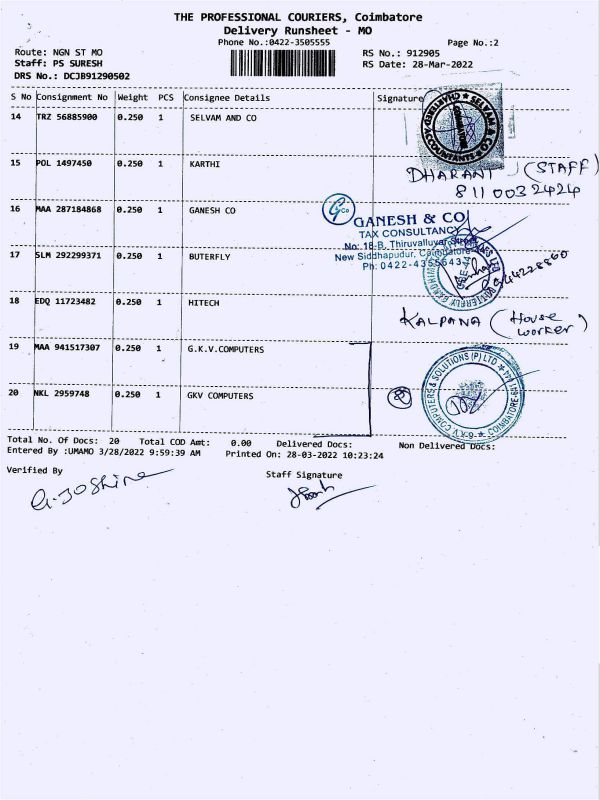 THE PROFESSIONAL COURIERS, Coimbatore
Delivery Runsheet - MO
Phone No.:0422-3505555
Page No.:2
Route: NGN ST MO
RS No.: 912905
Staff: PS SURESH
RS Date: 28-Mar-2022
DRS No.: DCJB91290502
S No Consignment No Weight PCS Consignee Details Signature
14 TRZ 56885900 0.250 1 SELVAM AND CO
SELVAM & CO
CHARTERED ACCOUNTANTS
15 POL 1497450 0.250 1 KARTHI
DHARANI (STAFF)
8110032424
16 MAA 287184868 0.250 1 GANESH CO
GANESH & CO
TAX CONSULTANCY
No: 18-B, Thiruvalluvar Street
New Siddhapudur, Coimbatore
Ph: 0422-4355643
17 SLM 292299371 0.250 1 BUTERFLY
18 EDQ 11723482 0.250 1 HITECH
KALPANA (House worker)
19 MAA 941517307 0.250 1 G.K.V.COMPUTERS
20 NKL 2959748 0.250 1 GKV COMPUTERS
G.K.V. COMPUTERS & SOLUTIONS (P) LTD
COIMBATORE-641 044
Total No. Of Docs: 20 Total COD Amt: 0.00 Delivered Docs: Non Delivered Docs:
Entered By :UMAMO 3/28/2022 9:59:39 AM Printed On: 28-03-2022 10:23:24
Verified By
Staff Signature
G.Joshine